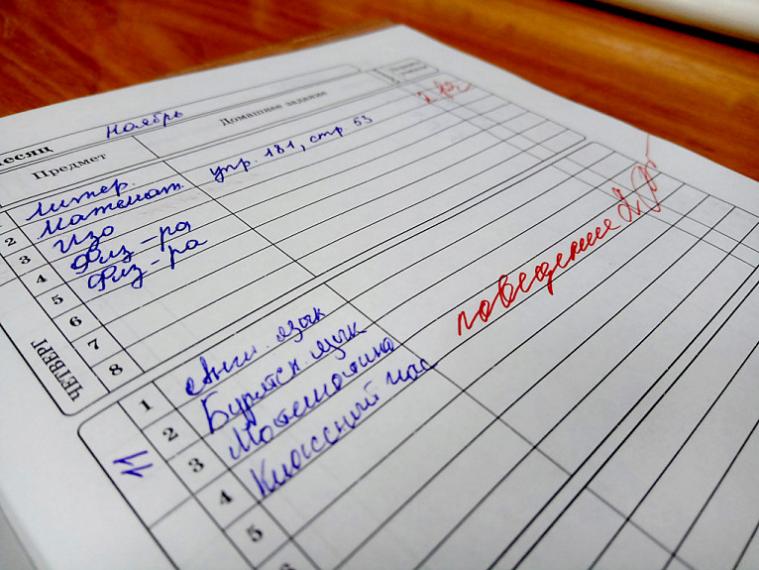 месяц ноябрь
Предмет Домашнее задание
1 литер.
2 математ. упр. 181, стр 53
3 изо
4 Физ-ра
5 Физ-ра
6
7
8
ЧЕТВЕРГ
1 Англ. язык
2 Бурятск язык
3 Математика
4 Классный час
5
6
11
поведение 2